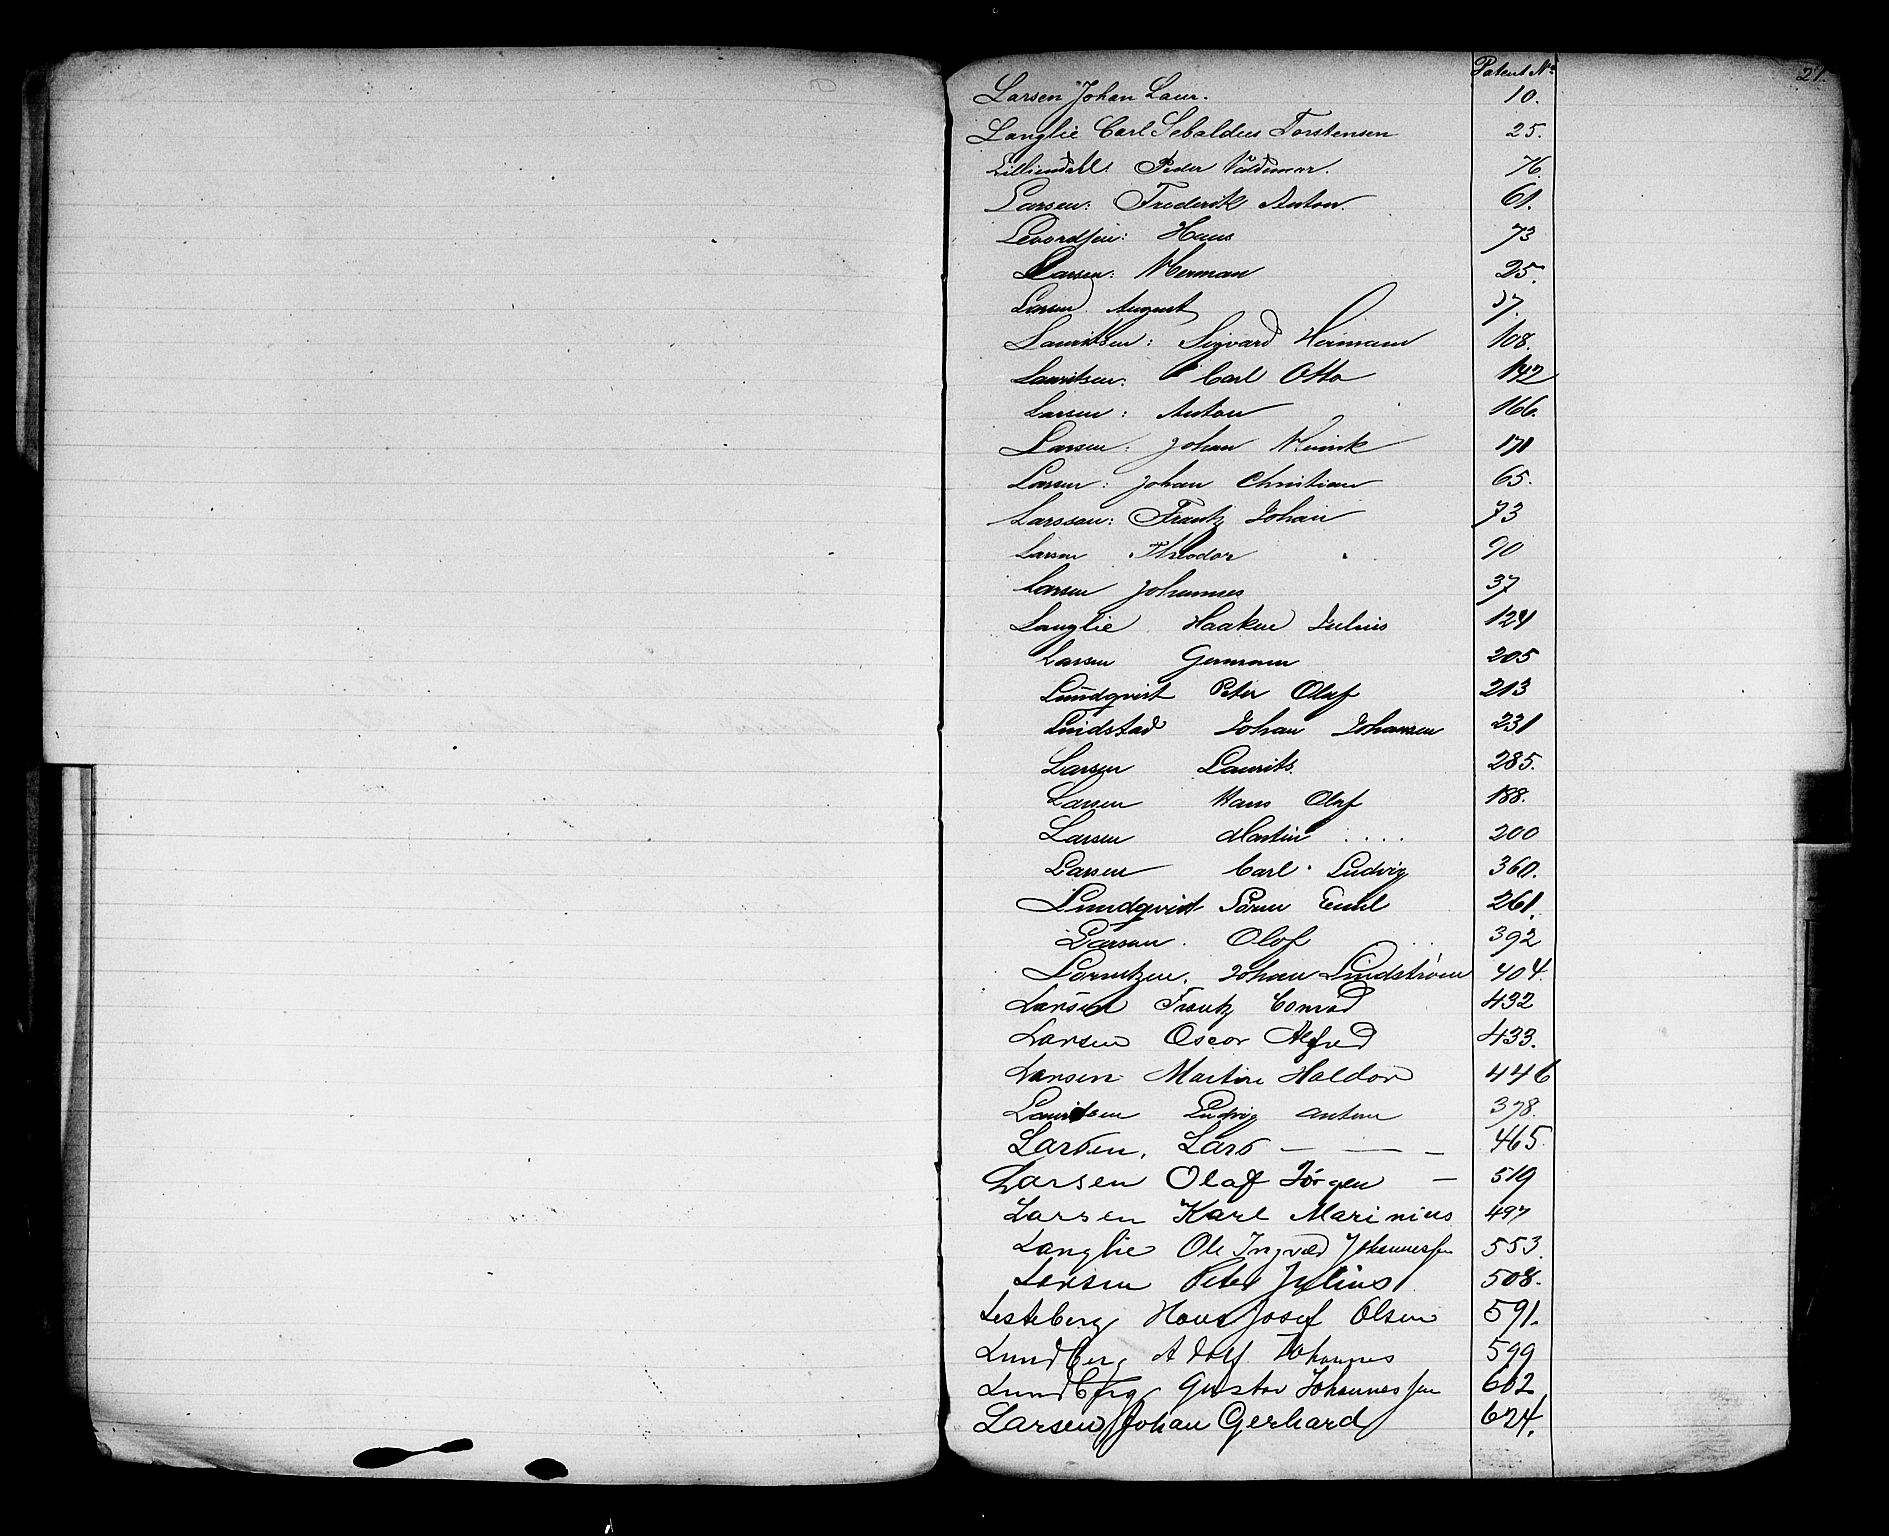 Patent No 27.
Larsen Johan Laur. 10.
Langlie Carl Sebaldus Torstensen 25.
Lilliendahl Peder Valdemar. 76.
Larsen: Frederik Anton. 61.
Levordsen: Hans 73
Larsen: Herman 25.
Larsen August 57.
Lauritsen: Sigvard Hermann 108.
Lauritsen. Carl Otto 142
Larsen: Anton 166.
Larsen. Johan Henrik 171
Larsen: Johan Christian 65.
Larsson: Frantz Johan 73
Larsen Theodor 90
Larsen Johannes 37
Langlie Haaken Julius 124
Larsen Germann 205
Lundqvist Peter Olaf 213
Lindstad Johan Johansen 231
Larsen Laurits. 285.
Larsen Hans Olaf 188.
Larsen Martin 200
Larsen Carl Ludvig 360.
Lundqvist Sören Emil 261.
Larsen. Olof 392
Lorentzen. Johan Lindstrøm 404.
Larsen Frantz Conrad 432
Larsen Oscar Alfred 433.
Larsen Martin Haldor 446
Lauridsen Ludvig Anton 378.
Larsen, Lars — — — 465.
Larsen Olaf Jörgen — 519
Larsen Karl Marinius 497
Langlie Ole Ingvald Johannessen 553.
Larsen Peter Julius 508.
Lesteberg Hans Josef Olsen 591.
Lundberg Adolf Johannes 599
Lundberg Gustav Johannessen 602
Larsen Johan Gerhard 624.